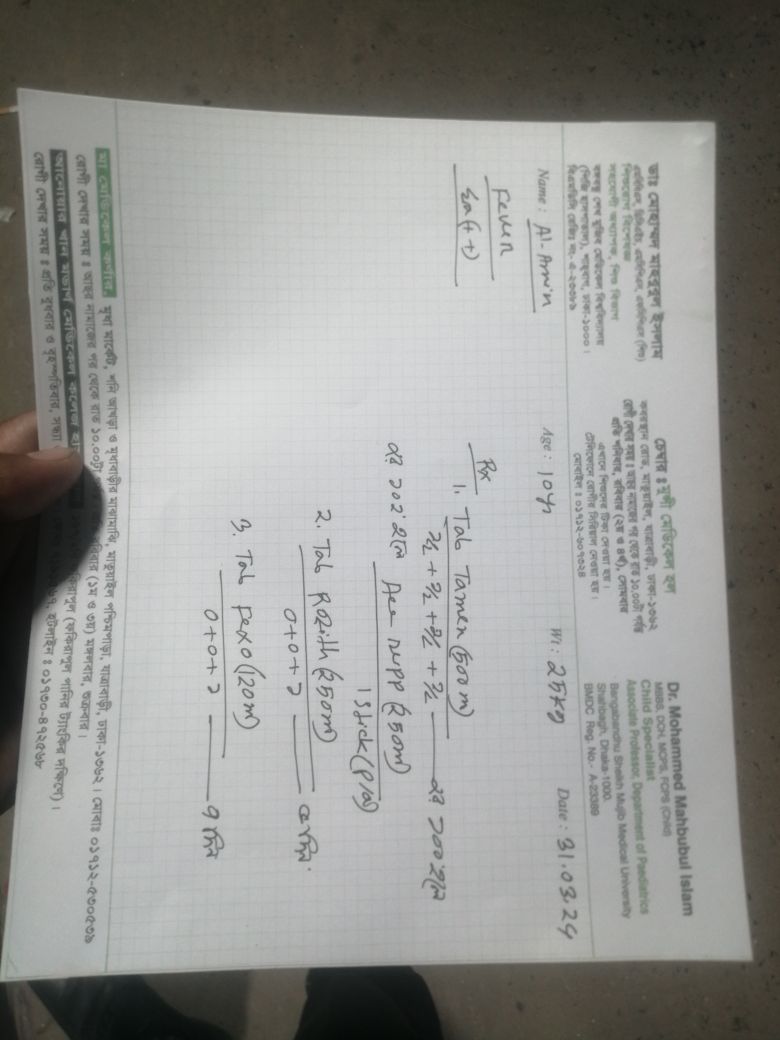 ডাঃ মোহাম্মদ মাহবুবুল ইসলাম
এমবিবিএস, ডিসিএইচ, এমসিপিএস, এফসিপিএস (শিশু)
শিশুরোগ বিশেষজ্ঞ
সহযোগী অধ্যাপক, শিশু বিভাগ
বঙ্গবন্ধু শেখ মুজিব মেডিকেল বিশ্ববিদ্যালয়
(পিজি হাসপাতাল), শাহবাগ, ঢাকা-১০০০।
বিএমডিসি রেজিঃ নং- এ-২৩৩৮৯
চেম্বার : মুন্সী মেডিকেল হল
কবরস্থান রোড, মাতুয়াইল, যাত্রাবাড়ী, ঢাকা-১৩৬২
রোগী দেখার সময় : আছর নামাজের পর থেকে রাত ১০.০০টা পর্যন্ত
প্রতি শনিবার, রবিবার (২য় ও ৪র্থ), সোমবার
এখানে শিশুদের টিকা দেওয়া হয়।
টেলিফোনে রোগীর সিরিয়াল নেওয়া হয়।
মোবাইল : ০১৭১২-৬০৭৩২৪
Dr. Mohammed Mahbubul Islam
MBBS, DCH, MCPS, FCPS (Child)
Child Specialist
Associate Professor, Department of Paediatrics
Bangabandhu Sheikh Mujib Medical University
Shahbagh, Dhaka-1000.
BMDC Reg. No.- A-23389
Name : Al-Amin Age : 10yr Wt : 25kg Date : 31.03.24
Fever
(++)
Rx
1. Tab Tamen (500m)
১/২ + ১/২ + ১/২ + ১/২ জ্বর ১০০° হলে
জ্বর ১০২° হলে Ace supp (250m)
1 stick (P/R)
2. Tab Rozith (250m)
0+0+১ ৫ দিন
3. Tab Fexo (120m)
0+0+১ ৭ দিন
মা মেডিকেল কর্ণার, মৃধা মার্কেট, শনি আখড়া ও মৃধাবাড়ীর মাঝামাঝি, মাতুয়াইল পশ্চিমপাড়া, যাত্রাবাড়ী, ঢাকা-১৩৬২। মোবাঃ ০১৭১২-৫৩০৫৩৯
রোগী দেখার সময় : আছর নামাজের পর থেকে রাত ১০.০০টা রবিবার (১ম ও ৩য়) মঙ্গলবার, শুক্রবার।
আনোয়ার খান মডার্ণ মেডিকেল কলেজ ফকিরাপুল (ফকিরাপুল পানির ট্যাংকির দক্ষিণে)।
রোগী দেখার সময় : প্রতি বুধবার ও বৃহস্পতিবার, সন্ধ্যা হটলাইন : ০১৭৩০-৪৭২৫৬৮